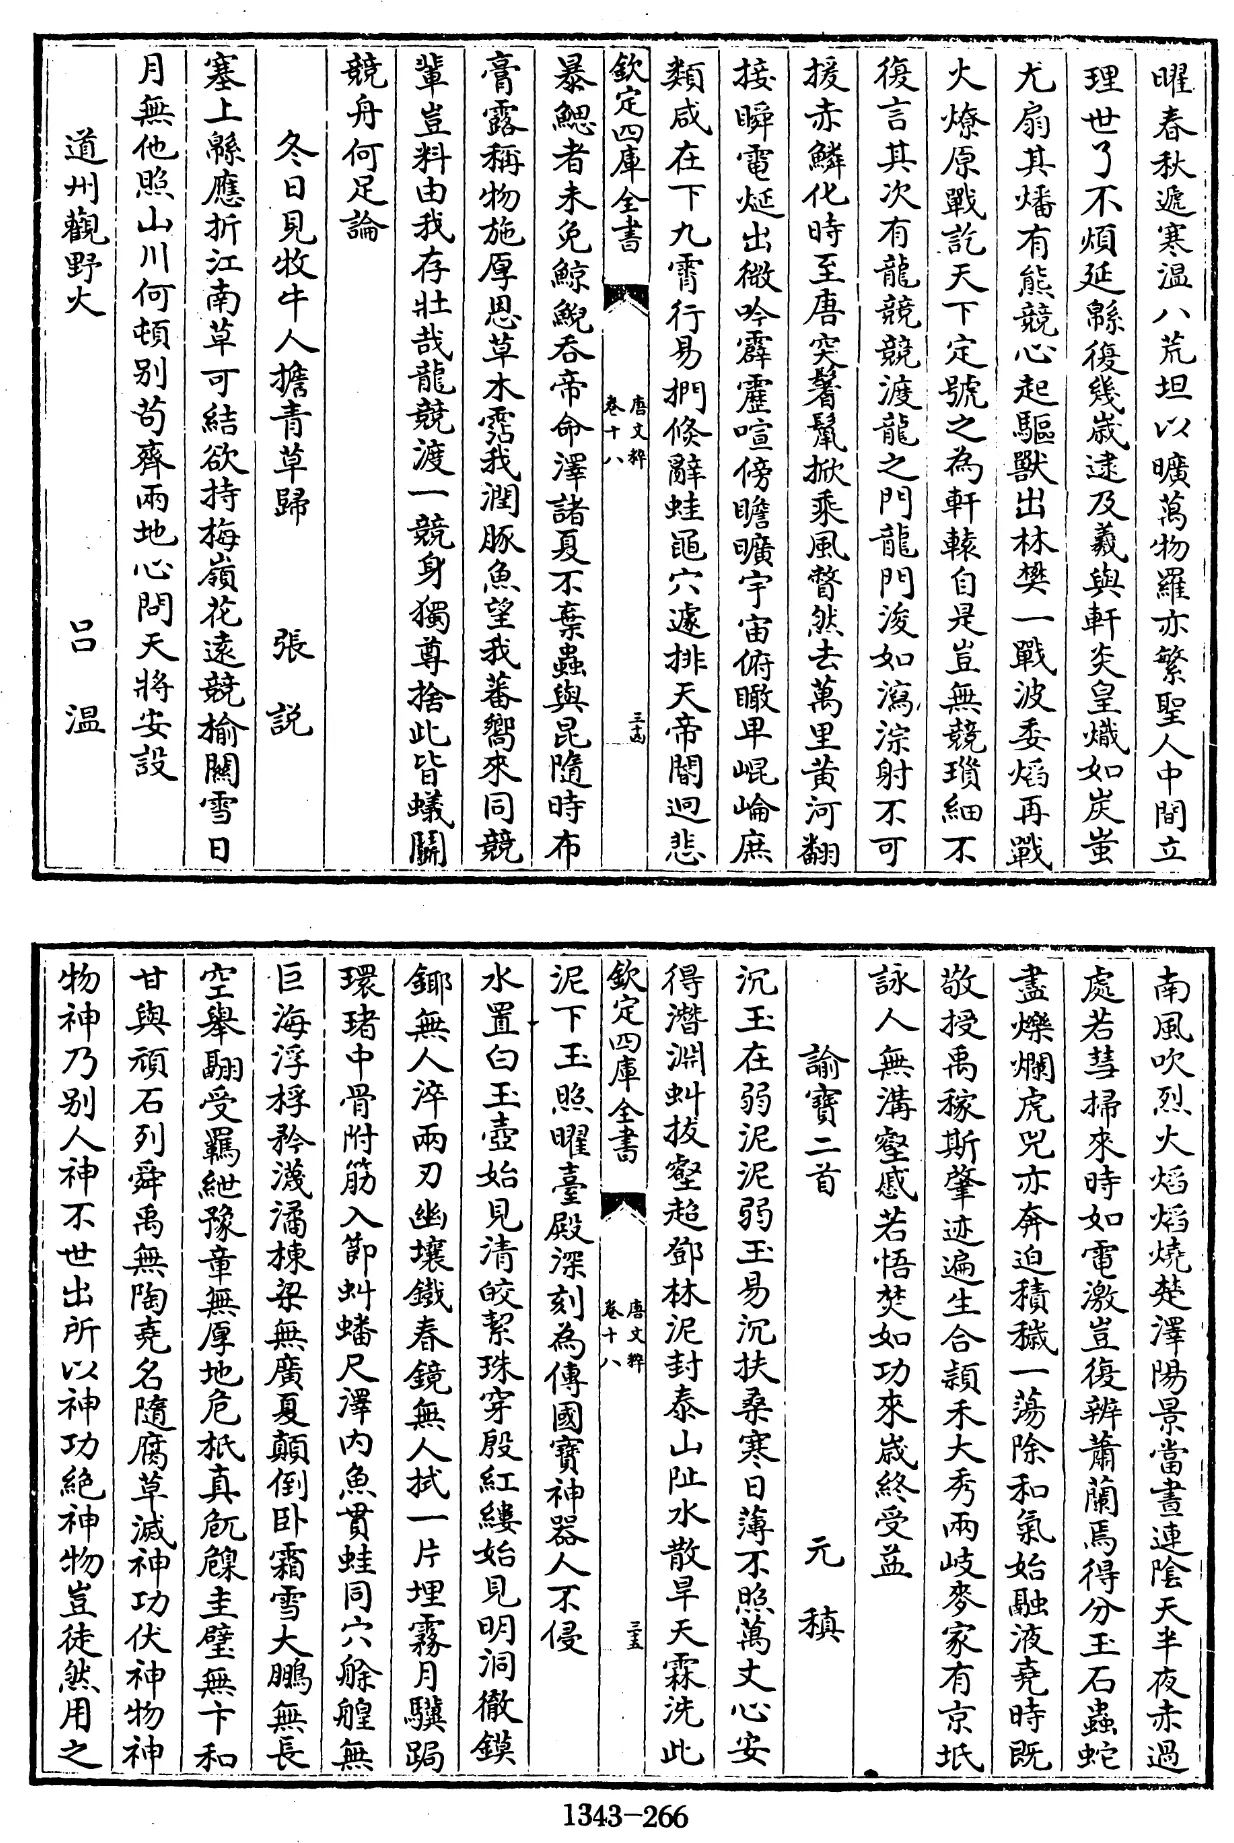 曜春秋遞寒温八荒坦以曠萬物羅亦繁聖人中間立
理世了不煩延緜復幾歳逮及羲與軒炎皇熾如炭蚩
尤扇其燔有熊競心起驅獸出林樊一戰波委焰再戰
火燎原戰訖天下定號之為軒轅自是豈無競瑣細不
復言其次有龍競競渡龍之門龍門浚如瀉淙射不可
援赤鱗化時至唐突鬐鬣掀乘風瞥然去萬里黄河翻
接瞬電烻出微吟霹靂喧傍瞻曠宇宙俯瞰卑崐崘庶
類咸在下九霄行易捫倐辭蛙黽穴遽排天帝閽迥悲
欽定四庫全書
唐文粹
卷十八
三十四
暴鰓者未免鯨鯢吞帝命澤諸夏不棄蟲與昆隨時布
膏露稱物施厚恩草木霑我潤豚魚望我蕃嚮來同競
輩豈料由我存壯哉龍競渡一競身獨尊捨此皆蟻鬭
競舟何足論
冬日見牧牛人擔青草歸 張説
塞上緜應折江南草可結欲持梅嶺花遠競榆關雪日
月無他照山川何頓别苟齊兩地心問天將安設
道州觀野火 吕温
南風吹烈火焰焰燒楚澤陽景當晝連陰天半夜赤過
處若彗掃來時如電激豈復辨蕭蘭焉得分玉石蟲蛇
盡爍爛虎兕亦奔迫積穢一蕩除和氣始融液堯時既
敬授禹稼斯肇迹遍生合頴禾大秀兩岐麥家有京坻
詠人無溝壑慼若悟焚如功來歳終受益
諭寶二首 元稹
沉玉在弱泥泥弱玉易沉扶桑寒日薄不照萬丈心安
得潛淵虬拔壑超鄧林泥封泰山阯水散旱天霖洗此
欽定四庫全書
唐文粹
卷十八
三十五
泥下玉照曜臺殿深刻為傳國寶神器人不侵
水置白玉壺始見清皎絜珠穿殷紅縷始見明洞徹鏌
鎁無人淬兩刃幽壤鐵春鏡無人拭一片埋霧月驥跼
環堵中骨附筋入節虬蟠尺澤内魚貫蛙同穴艅艎無
巨海浮桴矜濊潏棟梁無廣夏顛倒卧霜雪大鵬無長
空舉翮受羈紲豫章無厚地危柢真卼臲圭璧無卞和
甘與頑石列舜禹無陶堯名隨腐草滅神功伏神物神
物神乃别人神不世出所以神功絶神物豈徒然用之
1343-266